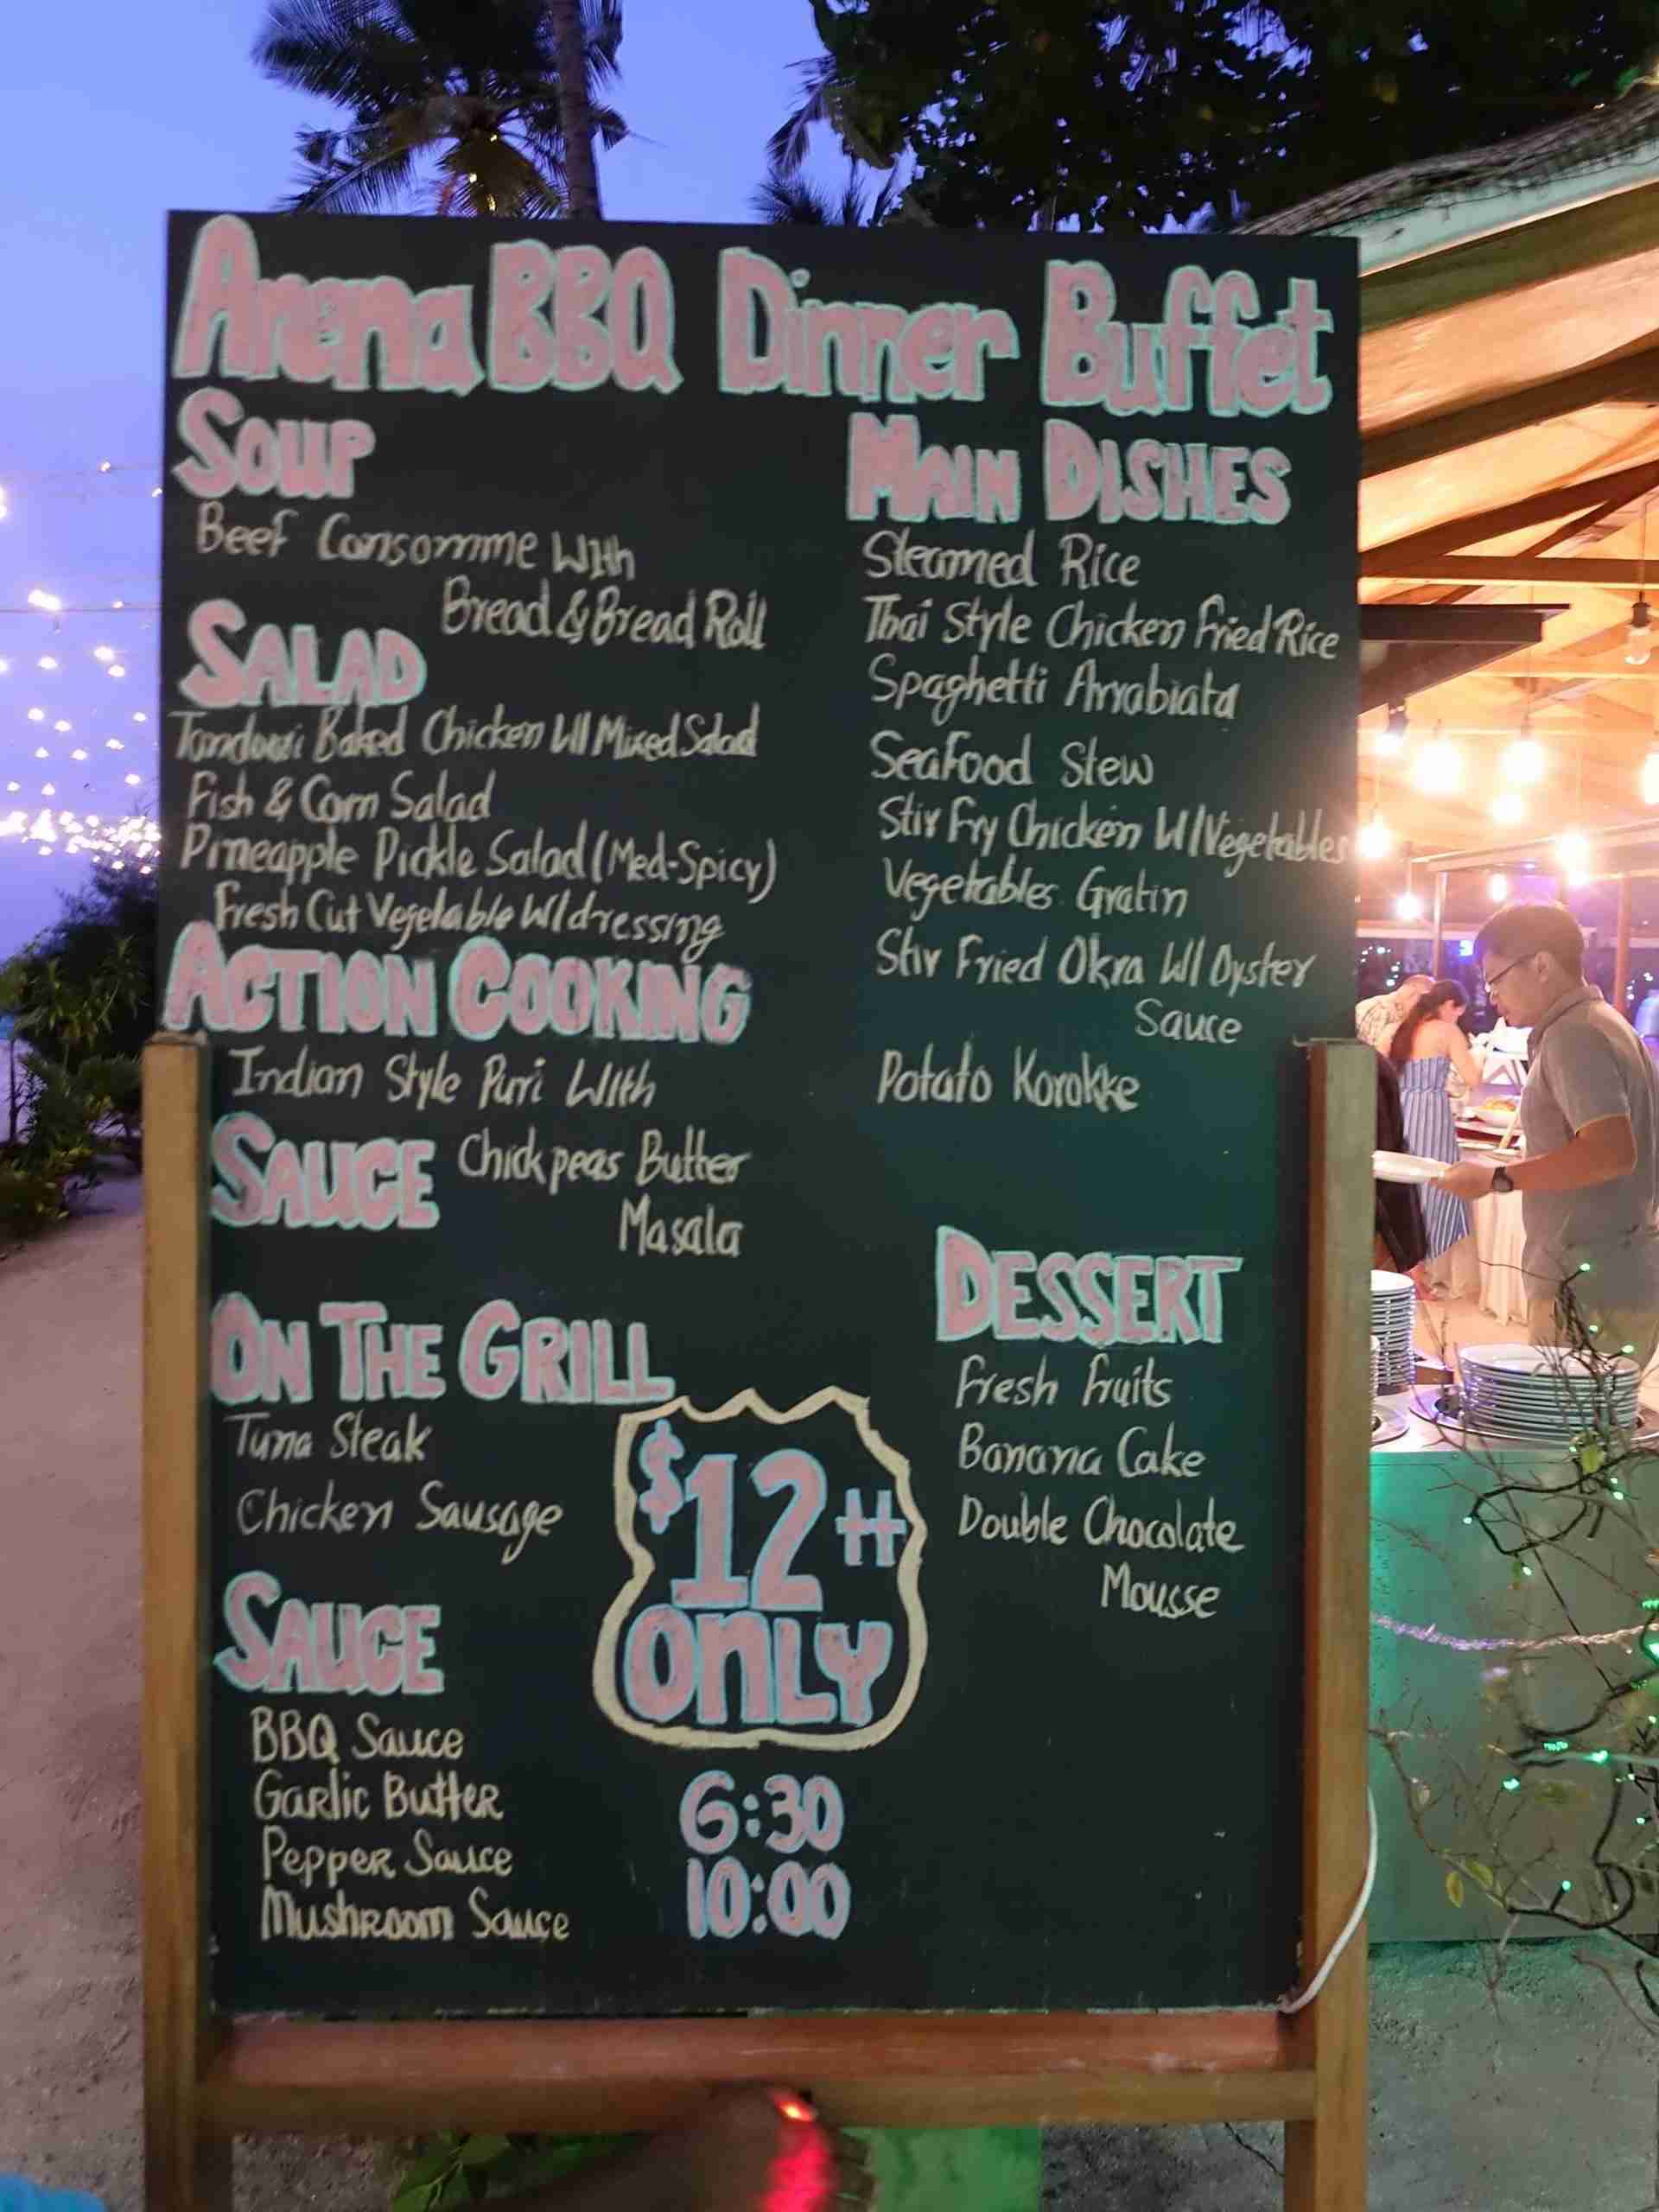 Arena BBQ Dinner Buffet
SOUP
Beef Consomme With
Bread & Bread Roll
SALAD
Tandoori Baked Chicken W/ Mixed Salad
Fish & Corn Salad
Pineapple Pickle Salad (Med-Spicy)
Fresh Cut Vegetable W/ dressing
ACTION COOKING
Indian Style Puri With
SAUCE Chick peas Butter
Masala
ON THE GRILL
Tuna Steak
Chicken Sausage
SAUCE
BBQ Sauce
Garlic Butter
Pepper Sauce
Mushroom Sauce
MAIN DISHES
Steamed Rice
Thai Style Chicken Fried Rice
Spaghetti Arrabiata
Seafood Stew
Stir Fry Chicken W/ Vegetables
Vegetables Gratin
Stir Fried Okra W/ Oyster
Sauce
Potato Korokke
DESSERT
Fresh Fruits
Banana Cake
Double Chocolate
Mousse
$12++
ONLY
6:30
10:00